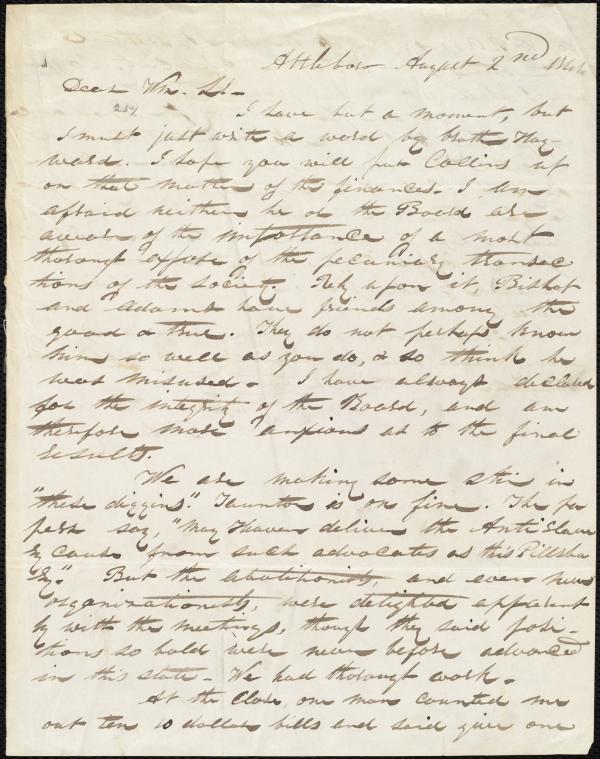 Attleboro August 2nd
Dear Wm. Ll-
257
I have but a moment, but
I must just write a word by broth Hay-
ward. I hope you will put Collins up
on that matter of the finances. I am
afraid neither he or the Board are
aware of the importance of a most
thorough expose of the pecuniary transac
tions of the society. Rely upon it, Bishop
and Adams have friends among the
good & true. They do not perhaps know
him so well as you do, & so think he
was misused. I have always declared
for the integrity of the Board, and am
therefore more anxious as to the final
results.
We are making some stir in
"these diggins". Taunton is on fire. The pa
pers say, "May Heaven deliver the Anti Slave
ry cause from such advocates as this Pillsbu
ry". But the abolitionists, and even new
organizationists, were delighted apparent
ly with the meetings, though they said posi-
tions so bold were never before advanced
in this state. We had thorough work.
At the close, one man counted me
out ten 10 dollar bills and said give one